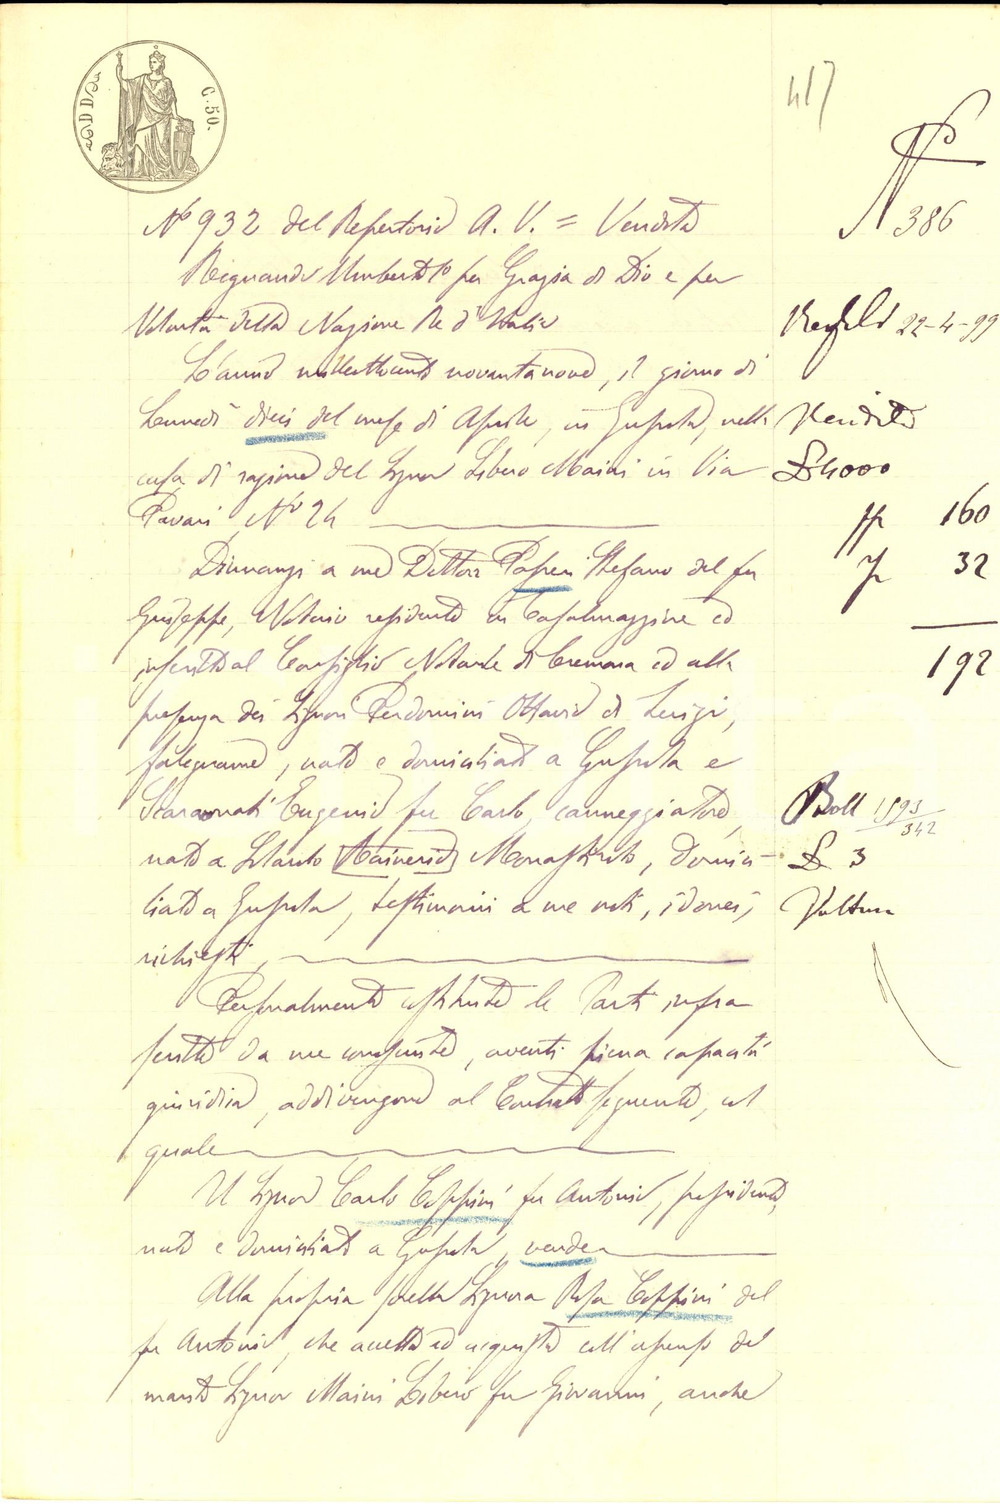 ADDÌ
C. 50.
417
N° 386
N° 932 del Repertorio A. V. = Vendita
Regnando Umberto I° per Grazia di Dio e per
Volontà della Nazione Re d'Italia
L'anno milleottocento novantanove, il giorno di
Lunedì dieci del mese di Aprile, in Gussola, nella
casa di ragione del Signor Libero Maini in Via
Pavari N° 24
Dinnanzi a me Dottor Stefano del fu
Giuseppe, Notaio residente in Casalmaggiore ed
inscritto al Consiglio Notarile di Cremona ed alla
presenza dei Signori Perdomini Ottavio di Luigi,
falegname, nato e domiciliato a Gussola e
Eugenio fu Carlo, canneggiatore,
nato a Monastirolo, domici-
liato a Gussola, testimoni a me noti, idonei,
richiesti,
Personalmente costituite le Parti infra
scritte da me conosciute, aventi piena capacità
giuridica, addivengono al Contratto seguente, col
quale
Il Signor Carlo Coppini fu Antonio, possidente,
nato e domiciliato a Gussola, vende
Alla propria sorella Signora Rosa Coppini del
fu Antonio, che accetta ed acquista coll'assenso del
marito Signor Maini Libero fu Giovanni, anche
22-4-99
Vendita
£ 4000
160
32
192
Boll 1893/342
£ 3
Voltura